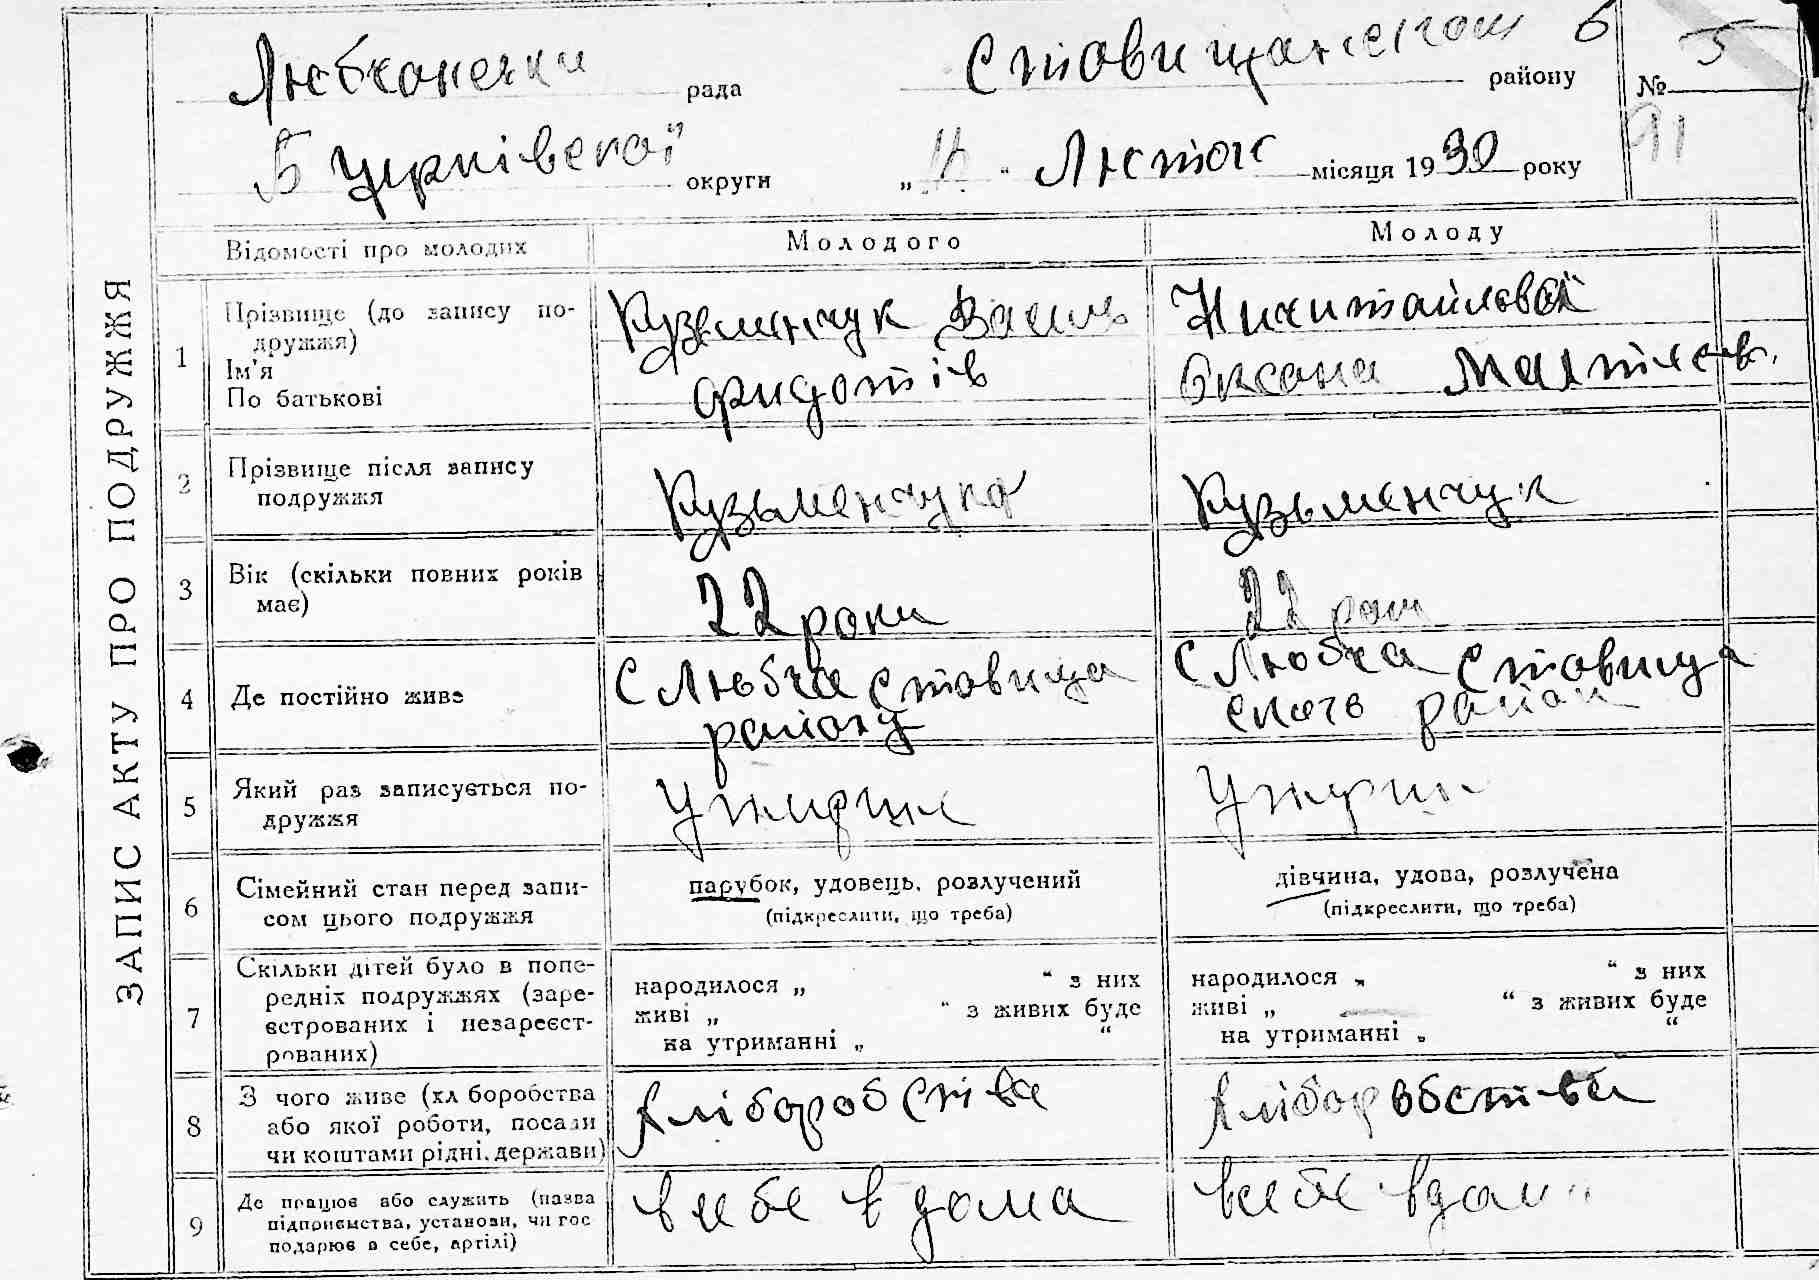 рада
району
№ 5
Б Церківської
округи
Лютого місяця 1930 року
91
ЗАПИС АКТУ ПРО ПОДРУЖЖЯ
Відомості про молодих
Молодого
Молоду
1
Прізвище (до запису по-
дружжя)
Ім'я
По батькові
Кузьменчук Василь
Оксана
2
Прізвище після запису
подружжя
Кузьменчука
Кузьменчук
3
Вік (скільки повних років
має)
22 роки
22 роки
4
Де постійно живе
С Любча Ставища
району
С Любча Ставища
ського район
5
Який раз записується по-
дружжя
6
Сімейний стан перед запи-
сом цього подружжя
парубок, удовець, розлучений
(підкреслити, що треба)
дівчина, удова, розлучена
(підкреслити, що треба)
7
Скільки дітей було в попе-
редніх подружжях (заре-
єстрованих і незареєст-
рованих)
народилося „ “ з них
живі „ “ з живих буде
на утриманні „ “
народилося „ “ з них
живі „ “ з живих буде
на утриманні „ “
8
З чого живе (хл боробства
або якої роботи, посади
чи коштами рідні, держави)
Хліборобства
Хліборобства
9
Де працює або служить (назва
підприємства, установи, чи гос
подарює в себе, артілі)
в себе в дома
в себе вдома